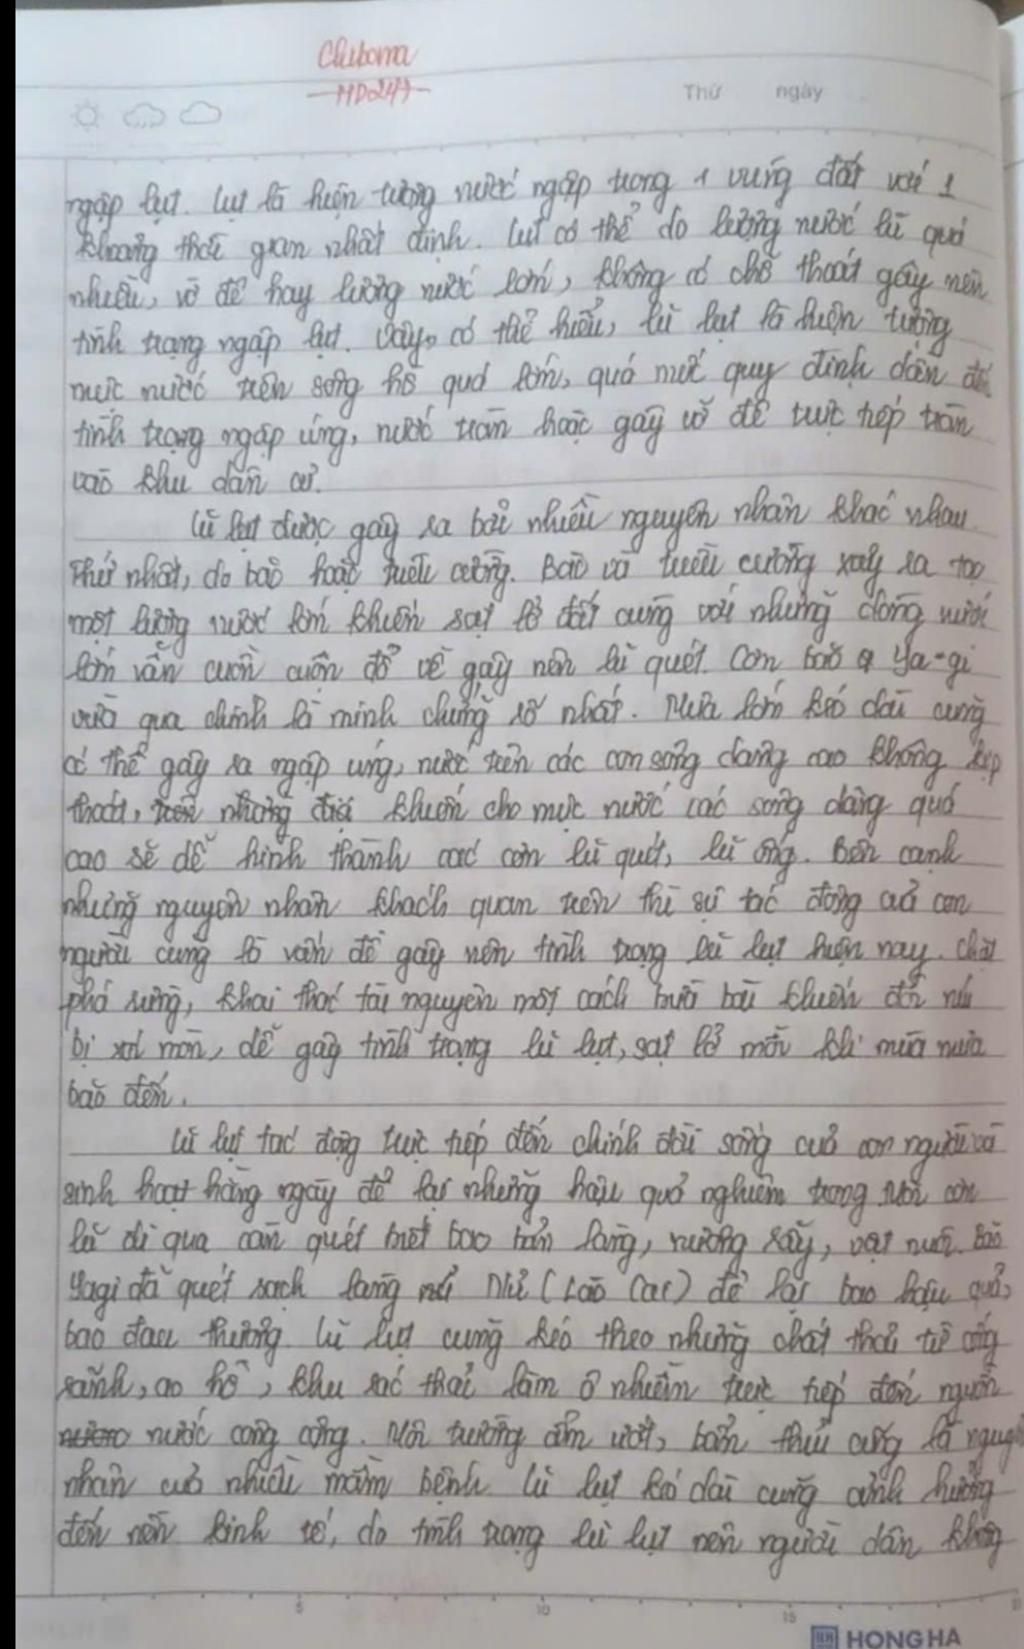 Chuboma
MD247
Thứ ngày
ngập lụt. Lụt là hiện tượng nước ngập trong 1 vùng đất với 1
khoảng thời gian nhất định. Lụt có thể do lượng nước lũ quá
nhiều, vỡ đê hay lượng nước lớn, không có chỗ thoát gây nên
tình trạng ngập lụt. Vậy, có thể hiểu, lũ lụt là hiện tượng
mực nước trên sông hồ quá lớn, quá mức quy định dẫn đến
tình trạng ngập úng, nước tràn hoặc gây vỡ đê trực tiếp tràn
vào khu dân cư.
Lũ lụt được gây ra bởi nhiều nguyên nhân khác nhau.
Thứ nhất, do bão hoặc triều cường. Bão và triều cường xảy ra tạo
một lượng nước lớn khiến sạt lở đất cùng với những dòng nước
lớn vẫn cuồn cuộn đổ về gây nên lũ quét. Cơn bão Ya-gi
vừa qua chính là minh chứng rõ nhất. Mưa lớn kéo dài cũng
có thể gây ra ngập úng, nước trên các con sông dâng cao không kịp
thoát, khiến cho mực nước các sông dâng quá
cao sẽ dễ hình thành các cơn lũ quét, lũ ống. Bên cạnh
những nguyên nhân khách quan trên thì sự tác động của con
người cũng là vấn đề gây nên tình trạng lũ lụt hiện nay. Chặt
phá rừng, khai thác tài nguyên một cách bừa bãi khiến đồi núi
bị xói mòn, dễ gây tình trạng lũ lụt, sạt lở mỗi khi mùa mưa
bão đến.
Lũ lụt tác động trực tiếp đến chính đời sống của con người và
sinh hoạt hàng ngày để lại những hậu quả nghiêm trọng. Mỗi cơn
lũ đi qua càn quét biết bao bản làng, nương rẫy, vật nuôi. Bão
Yagi đã quét sạch làng Nủ (Lào Cai) để lại bao hậu quả,
bao đau thương. Lũ lụt cũng kéo theo những chất thải từ cống
rãnh, ao hồ, khu rác thải làm ô nhiễm trực tiếp đến nguồn
nước công cộng. Môi trường ẩm ướt, bẩn thỉu cũng là nguyên
nhân của nhiều mầm bệnh. Lũ lụt kéo dài cũng ảnh hưởng
đến nền kinh tế, do tình trạng lũ lụt nên người dân không
5 10 15
HONG HA